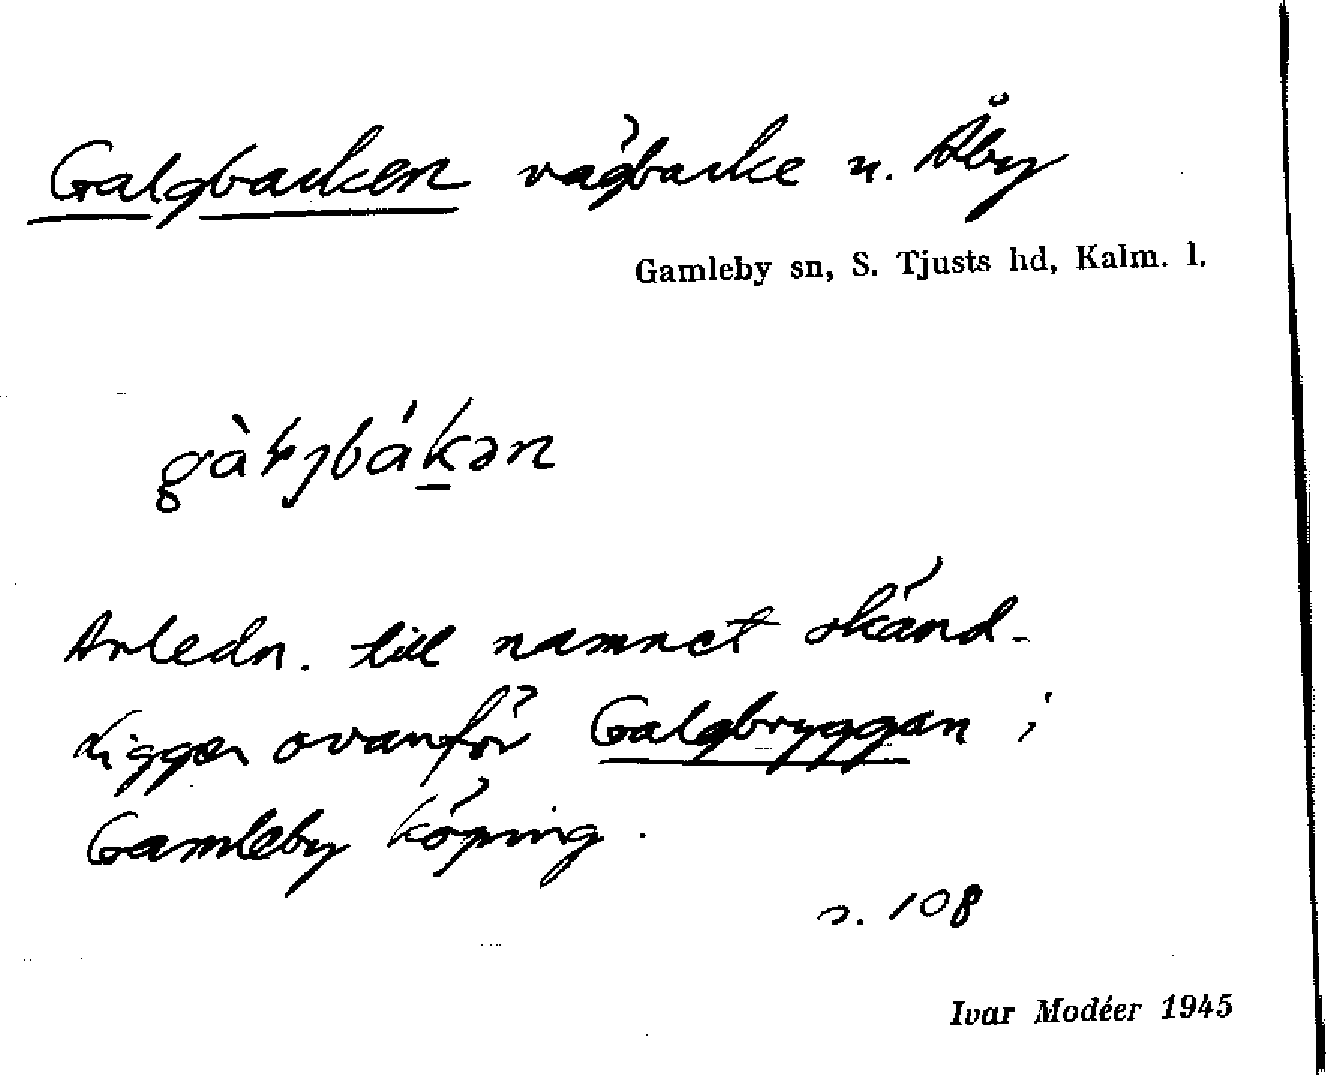 Galgbacken vägbacke u. Åby
Gamleby sn, S. Tjusts hd, Kalm. l.
gàłjbákən
Anledn. till namnet okänd.
Ligger ovanför Galgbryggan i
Gamleby köping.
s. 108
Ivar Modéer 1945